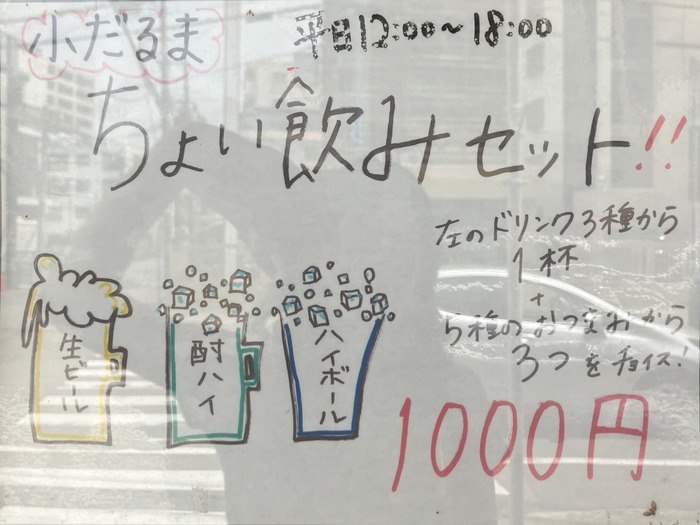 小だるま
平日12:00〜18:00
ちょい飲みセット!!
左のドリンク3種から
1杯
+
5種のおつまみから
3つをチョイス!
1000円
生ビール
酎ハイ
ハイボール